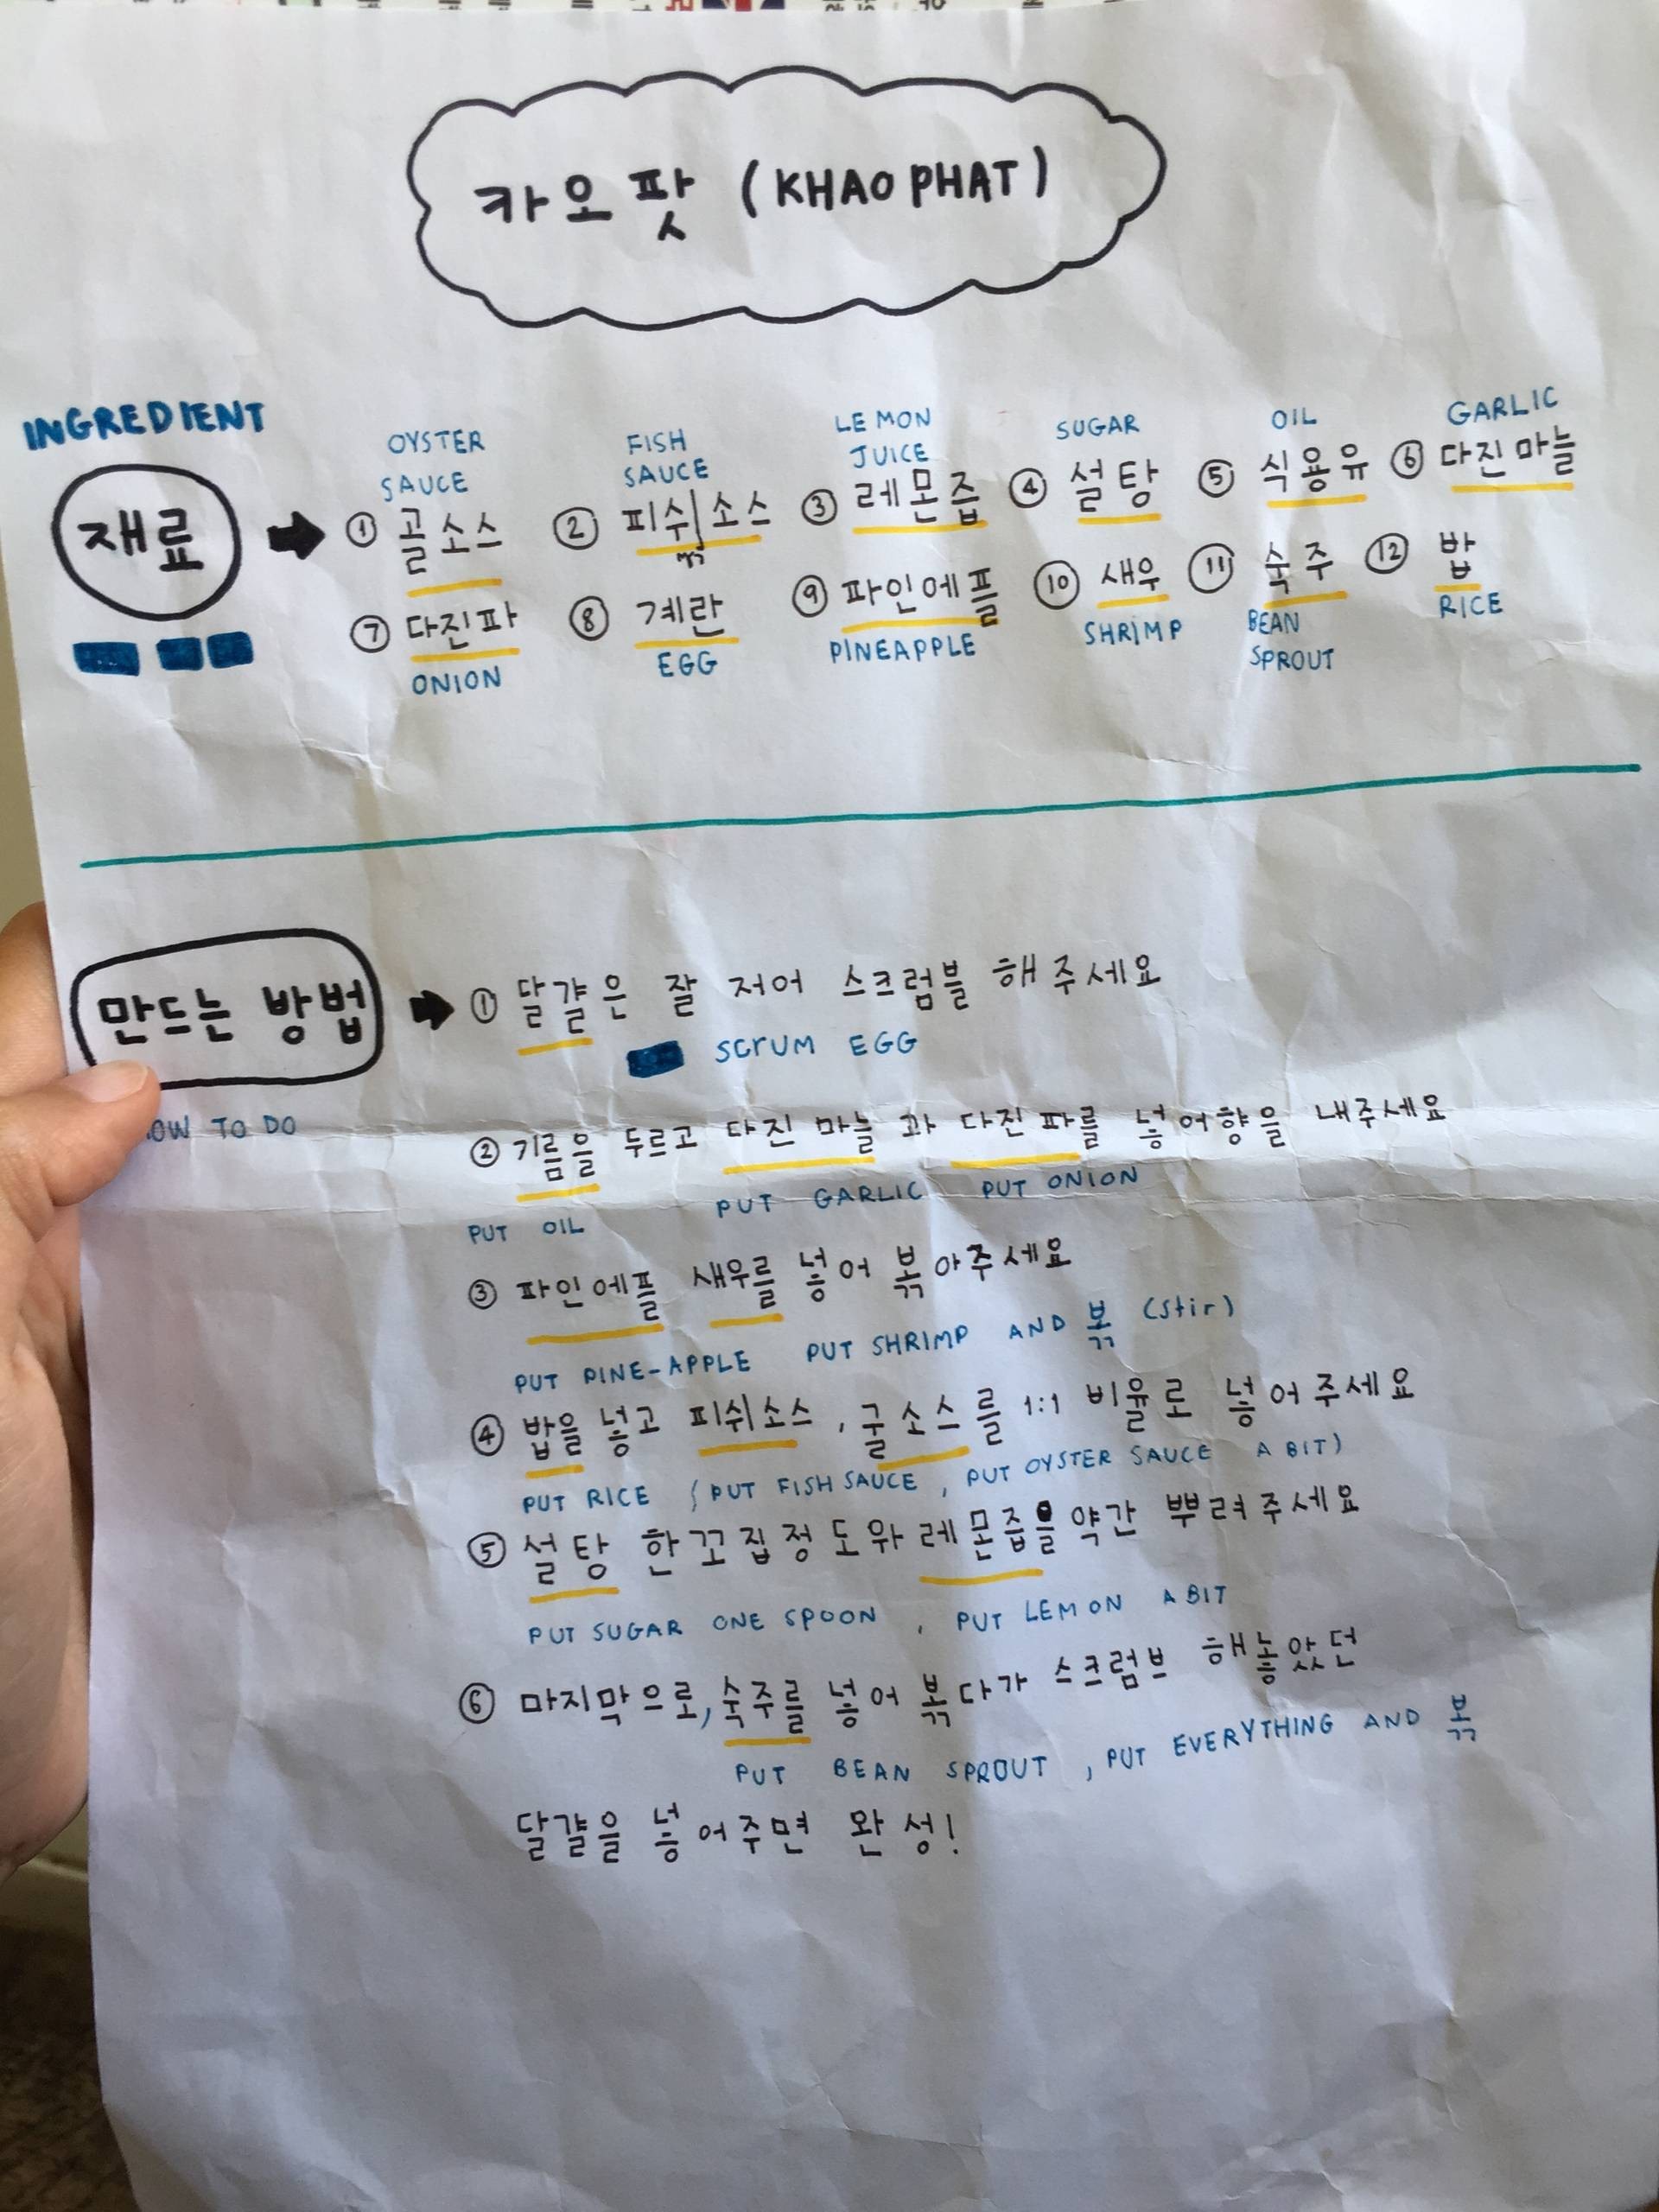 카오팟 (KHAO PHAT)
INGREDIENT
재료
OYSTER SAUCE
① 골소스
FISH SAUCE
② 피쉬소스
LEMON JUICE
③ 레몬즙
SUGAR
④ 설탕
OIL
⑤ 식용유
GARLIC
⑥ 다진마늘
⑦ 다진파
ONION
⑧ 계란
EGG
⑨ 파인에플
PINEAPPLE
⑩ 새우
SHRIMP
⑪ 숙주
BEAN SPROUT
⑫ 밥
RICE
만드는 방법
OW TO DO
① 달걀은 잘 저어 스크럼블 해주세요
SCRUM EGG
② 기름을 두르고 다진 마늘 과 다진 파를 넣어향을 내주세요
PUT OIL PUT GARLIC PUT ONION
③ 파인에플 새우를 넣어 볶아주세요
PUT PINE-APPLE PUT SHRIMP AND 볶 (stir)
④ 밥을 넣고 피쉬소스, 굴소스를 1:1 비율로 넣어주세요
PUT RICE (PUT FISH SAUCE, PUT OYSTER SAUCE A BIT)
⑤ 설탕 한꼬집정도와 레몬즙을 약간 뿌려주세요
PUT SUGAR ONE SPOON, PUT LEMON A BIT
⑥ 마지막으로, 숙주를 넣어 볶다가 스크럼브 해놓았던
PUT BEAN SPROUT, PUT EVERYTHING AND 볶
달걀을 넣어주면 완성!